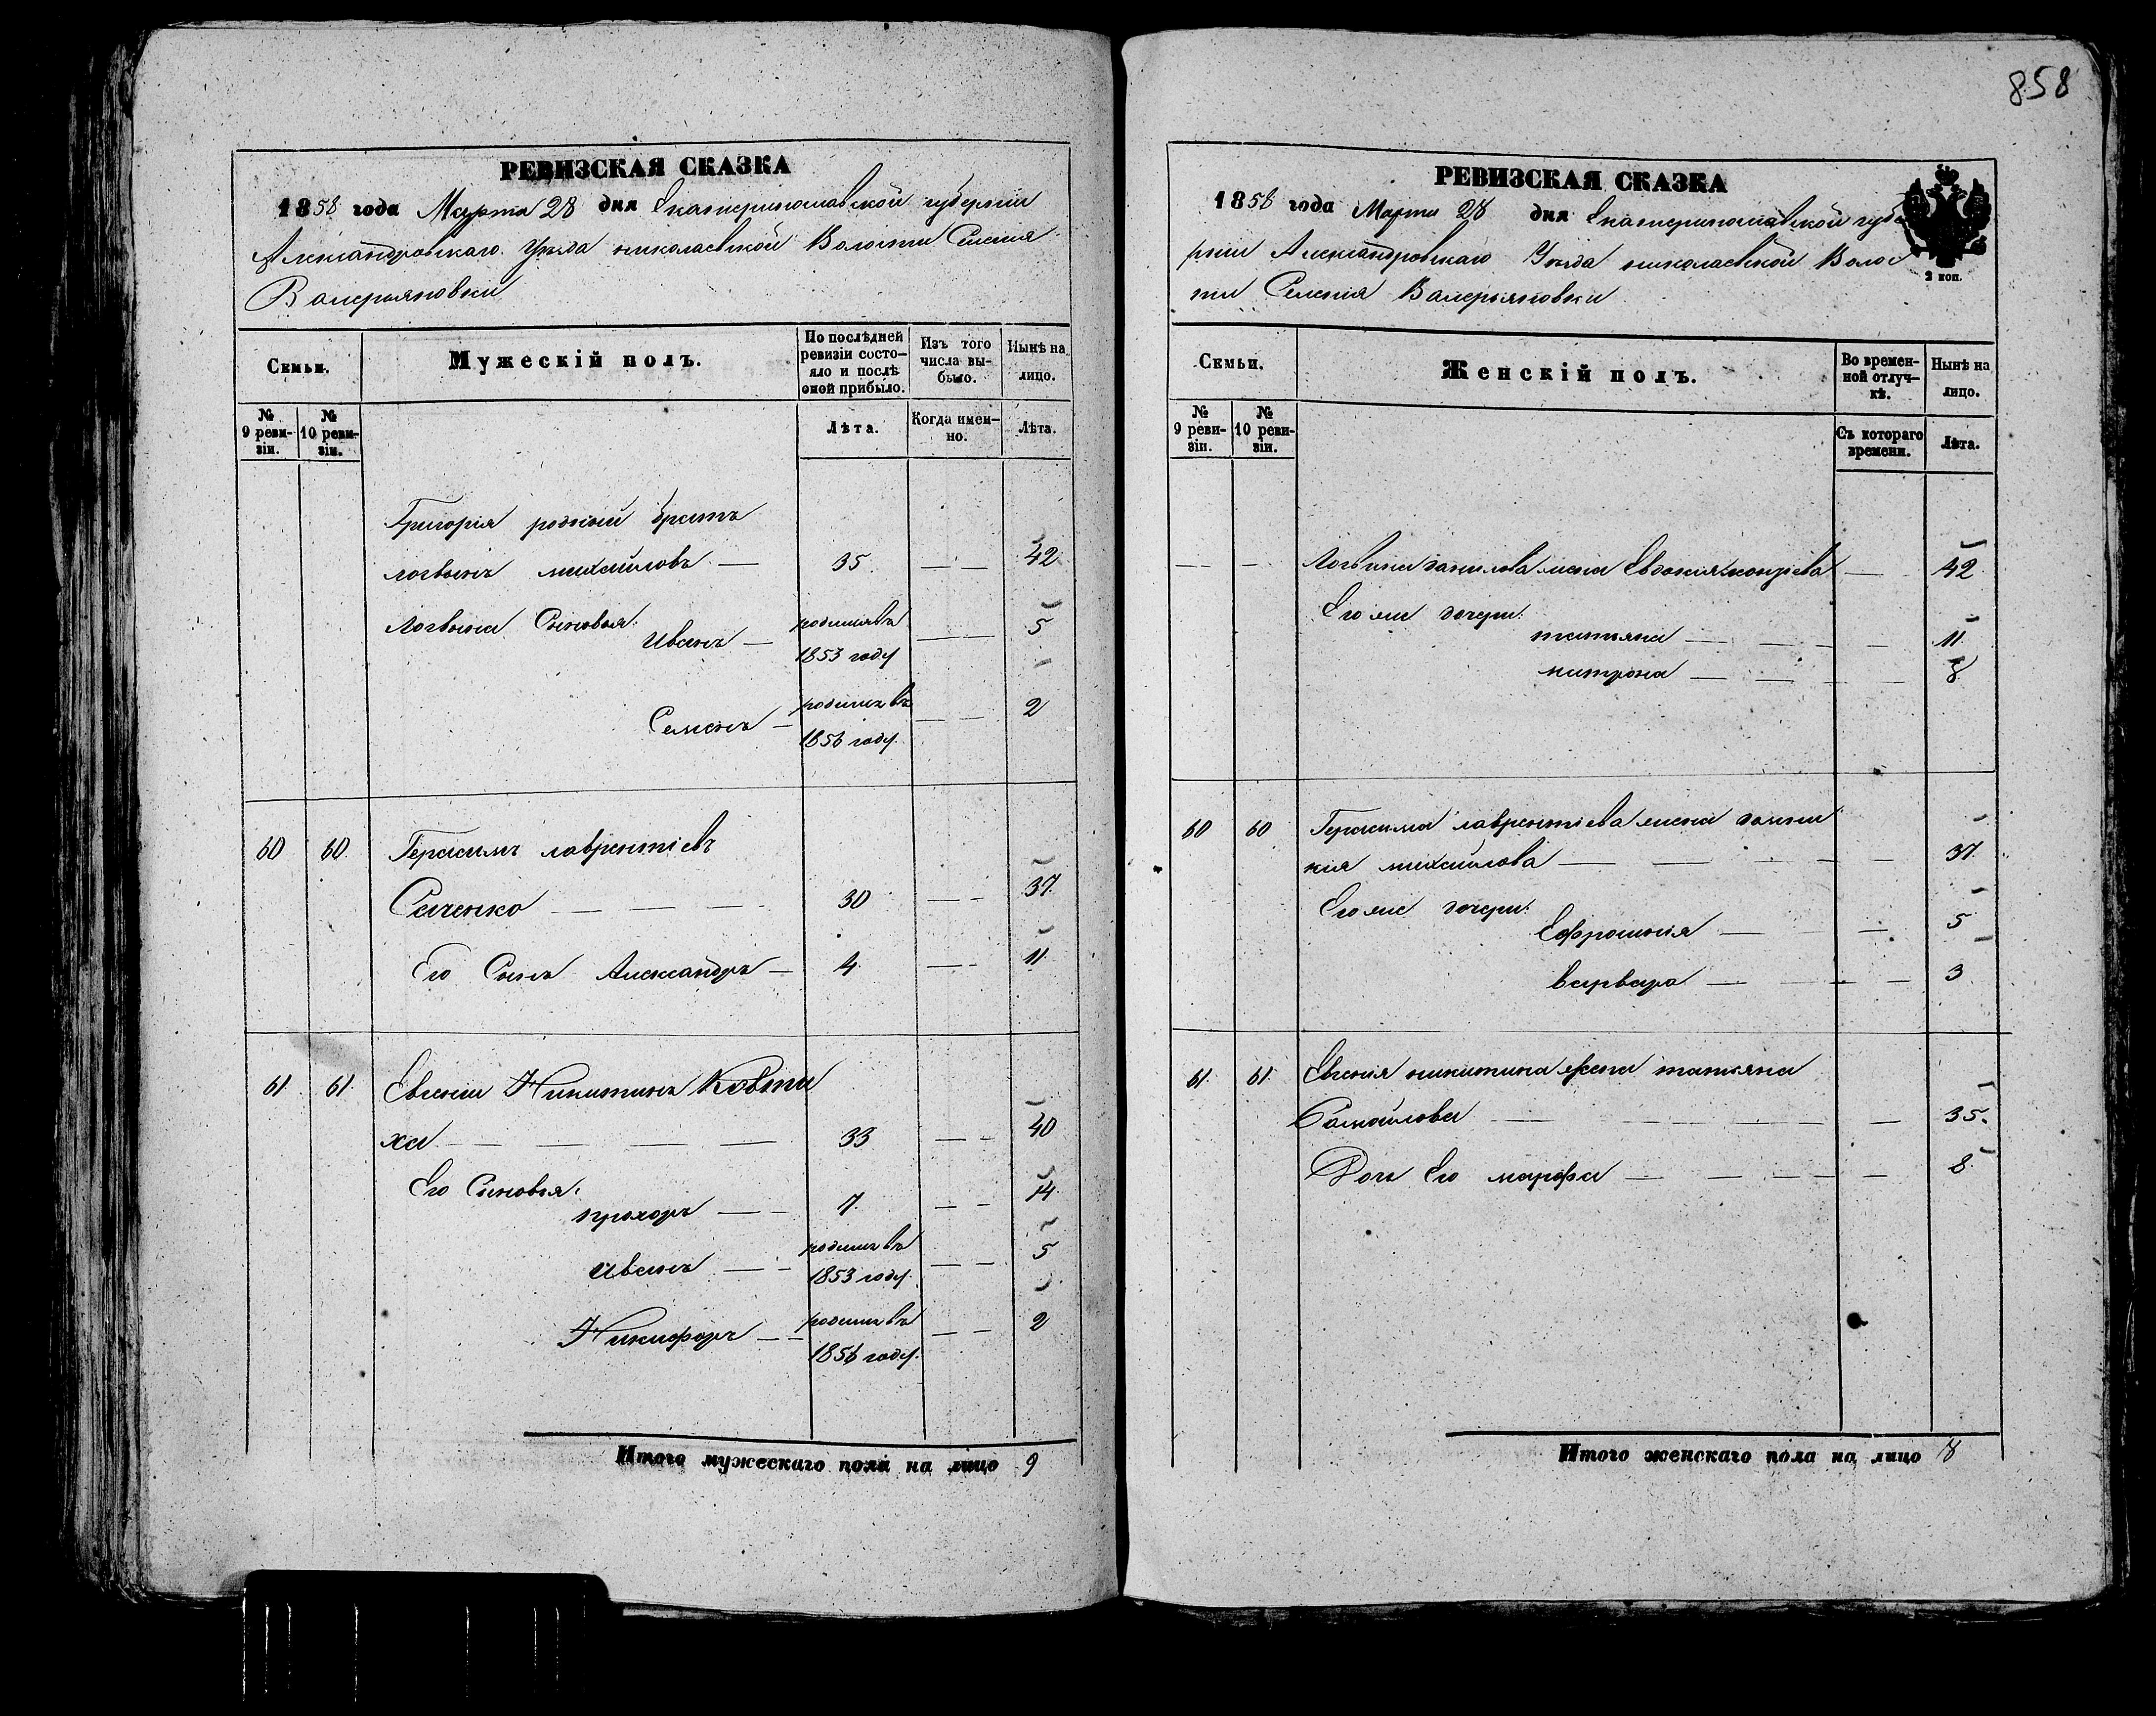 858
РЕВИЗСКАЯ СКАЗКА
1858 года Марта 28 дня Екатеринославской губернии
Александровскаго Уезда николаевской Волости Селения
Валерьяновки
Семьи.
Мужескій полъ.
По послѣдней ревизіи состояло и послѣ оной прибыло.
Изъ того числа выбыло.
Нынѣ на лицо.
№ 9 ревизіи.
№ 10 ревизіи.
Лѣта.
Когда именно.
Лѣта.
Григорія родный братъ
логвинъ михайловъ — 35 — — 42
Логвина Сыновья:
Иванъ — родился въ 1853 году — — 5
Семенъ — родился въ 1856 году — — 2
60 60 Герасимъ лаврентіевъ
Саченко — — — 30 — — 37
Его Сынъ Александръ — 4 — — 11
61 61 Евгении Никитинъ Ковту
ха — — — — 33 — — 40
Его Сыновья:
прохоръ — — 7 — — 14
иванъ — — родился въ 1853 году — — 5
Никифоръ — — родился въ 1856 году — — 2
Итого мужескаго пола на лицо 9
РЕВИЗСКАЯ СКАЗКА
1858 года Марта 28 дня Екатеринославской губе
рнии Александровскаго Уезда николаевской Волос
ти Селенія Валерьяновки
2 коп.
Семьи.
Женскій полъ.
Во временной отлучкѣ.
Нынѣ на лицо.
№ 9 ревизіи.
№ 10 ревизіи.
Съ котораго времени.
Лѣта.
Логвина жена Евдокия — 42
Его же дочери:
татьяна — — — — 11
матрона — — — 8
60 60 Герасима лаврентіева жена домни
кія михайлова — — — — 37
Его же дочери:
Ефросинія — — — 5
варвара — — — 3
61 61 Евгенія никитина жена татьяна
Самойлова — — — — — 35
Дочь Его марфа — — — — 8
Итого женскаго пола на лицо 8